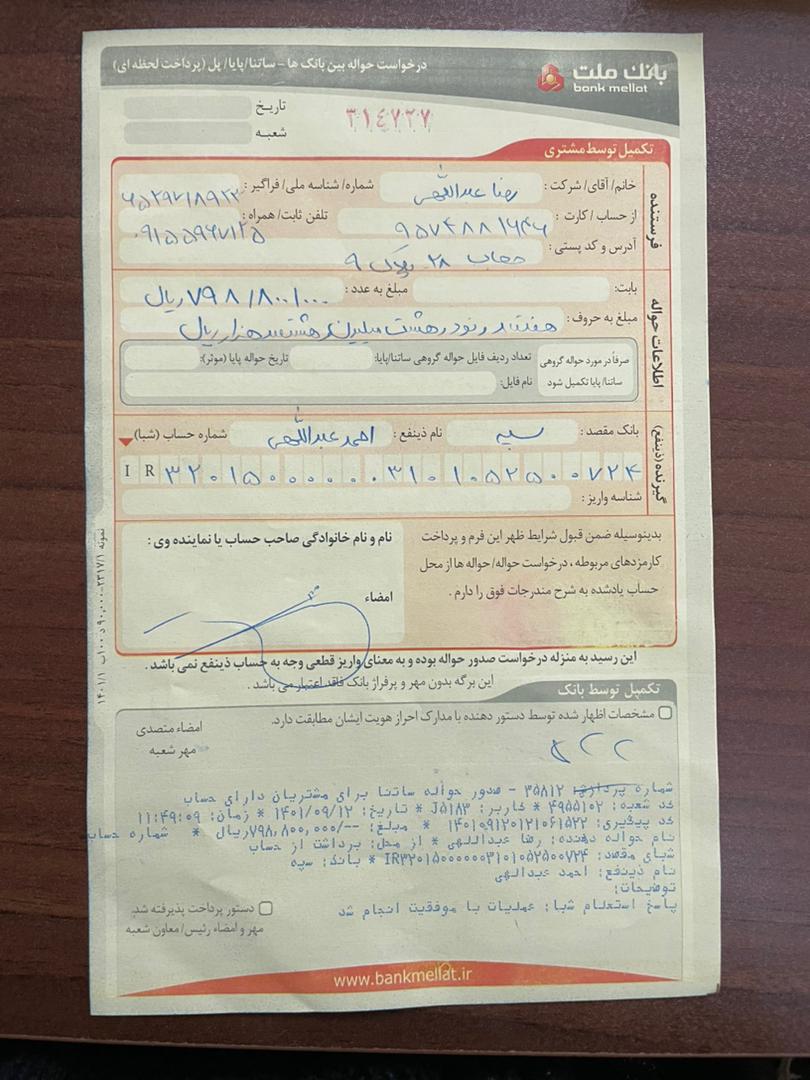 بانك ملت
bank mellat
درخواست حواله بین بانک ها - ساتنا/پایا/ پل (پرداخت لحظه ای)
۳۱٤۷۲۷
تاریخ
شعبه
تکمیل توسط مشتری
فرستنده
خانم/ آقای/ شرکت: رضا عبداللهی شماره/ شناسه ملی/ فراگیر:
از حساب / کارت: تلفن ثابت/ همراه: ۰۹۱۵۵۹۶۷۱۲۵
آدرس و کد پستی: ۲۸ پلاک ۹
اطلاعات حواله
بابت: مبلغ به عدد: ۷۹۸/۸۰۰/۰۰۰ ریال
مبلغ به حروف: هفتصد و نود و هشت میلیون و هشتصد هزار ریال
صرفاً در مورد حواله گروهی ساتنا/ پایا تکمیل شود
تعداد ردیف فایل حواله گروهی ساتنا/پایا: تاریخ حواله پایا (موثر):
نام فایل:
گیرنده (ذینفع)
بانک مقصد: سپه نام ذینفع: احمد عبداللهی شماره حساب (شبا)
IR ۳۲۰۱۵۰۰۰۰۰۰۰۳۱۰۱۰۵۲۵۰۰۷۲۴
شناسه واریز:
بدینوسیله ضمن قبول شرایط ظهر این فرم و پرداخت
کارمزدهای مربوطه، درخواست حواله/ حواله ها از محل
حساب یادشده به شرح مندرجات فوق را دارم.
نام و نام خانوادگی صاحب حساب یا نماینده وی:
امضاء
این رسید به منزله درخواست صدور حواله بوده و به معنای واریز قطعی وجه به حساب ذینفع نمی باشد.
این برگه بدون مهر و پرفراژ بانک فاقد اعتبار می باشد.
تکمیل توسط بانک
مشخصات اظهار شده توسط دستور دهنده با مدارک احراز هویت ایشان مطابقت دارد.
امضاء متصدی
مهر شعبه
شماره پردازش: ۳۵۸۱۲ - صدور حواله ساتنا برای مشتریان دارای حساب
کد شعبه: ۴۹۵۵۱۰۲ * کاربر: J۵۱۸۳ * تاریخ: ۱۴۰۱/۰۹/۱۲ * زمان: ۱۱:۴۹:۰۹
کد پیگیری: ۱۴۰۱۰۹۱۲۰۱۲۱۰۶۱۵۲۲ * مبلغ: --/۷۹۸,۸۰۰,۰۰۰ریال * شماره حساب
نام حواله دهنده: رضا عبداللهی * از محل: برداشت از حساب
شبای مقصد: IR۳۲۰۱۵۰۰۰۰۰۰۰۳۱۰۱۰۵۲۵۰۰۷۲۴ * بانک: سپه
نام ذینفع: احمد عبدالهی
توضیحات:
پاسخ استعلام شبا: عملیات با موفقیت انجام شد
دستور پرداخت پذیرفته شد.
مهر و امضاء رئیس/ معاون شعبه
www.bankmellat.ir